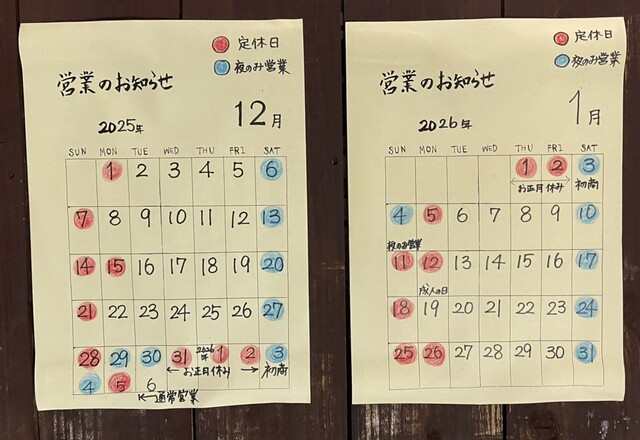 定休日
夜のみ営業
営業のお知らせ
12月
2025年
SUN MON TUE WED THU FRI SAT
1 2 3 4 5 6
7 8 9 10 11 12 13
14 15 16 17 18 19 20
21 22 23 24 25 26 27
28 29 30 31 2026年 1 2 3
お正月休み 初商
4 5 6
通常営業
定休日
夜のみ営業
営業のお知らせ
1月
2026年
SUN MON TUE WED THU FRI SAT
1 2 3
お正月休み 初商
4 5 6 7 8 9 10
夜のみ営業
11 12 13 14 15 16 17
成人の日
18 19 20 21 22 23 24
25 26 27 28 29 30 31